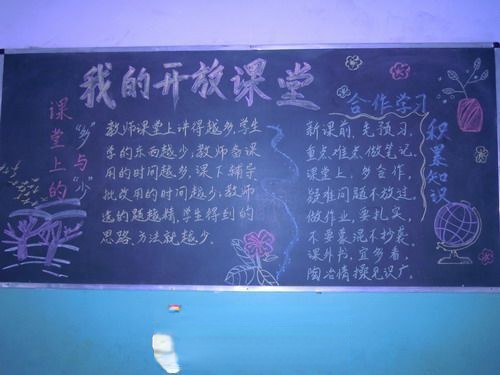 我的开放课堂
课堂上的"多"与"少"
教师课堂上讲得越多,学生
学的东西越少;教师备课
用的时间越少,课下辅导
批改用的时间越多;教师
选的题越精,学生得到的
思路、方法就越少.
合作学习
积累知识
新课前,先预习,
重点、难点做笔记.
课堂上,多合作,
疑难问题不放过.
做作业,要扎实,
不要蒙混不抄袭.
课外书,宜多看,
陶冶情操见识广.